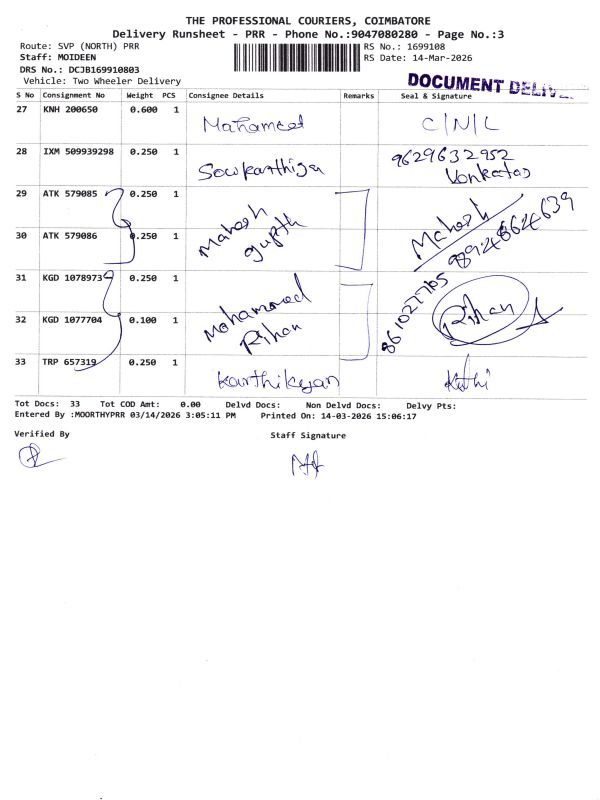 THE PROFESSIONAL COURIERS, COIMBATORE
Delivery Runsheet - PRR - Phone No.:9047080280 - Page No.:3
Route: SVP (NORTH) PRR
RS No.: 1699108
Staff: MOIDEEN
RS Date: 14-Mar-2026
DRS No.: DCJB169910803
Vehicle: Two Wheeler Delivery
DOCUMENT DELIV
S No Consignment No Weight PCS Consignee Details Remarks Seal & Signature
27 KNH 200650 0.600 1 Mahameed C/N/L
28 IXM 509939298 0.250 1 Sowkarthiga 9629632952
Venkatas
29 ATK 579085 0.250 1 Mahesh gupth Mahesh
30 ATK 579086 0.250 1 989248624639
31 KGD 1078973 0.250 1 Mohammed Rihan 8610277765
32 KGD 1077704 0.100 1 Rihan
33 TRP 657319 0.250 1 Karthikeyan
Tot Docs: 33 Tot COD Amt: 0.00 Delvd Docs: Non Delvd Docs: Delvy Pts:
Entered By :MOORTHYPRR 03/14/2026 3:05:11 PM Printed On: 14-03-2026 15:06:17
Verified By Staff Signature